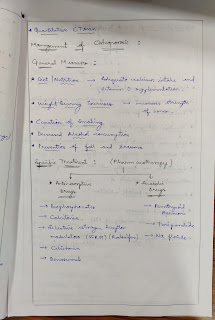 • Quantitative CT scan
Management of Osteoporosis :
General Measures :
• Diet / Nutrition → Adequate calcium intake and
vitamin D supplementation
• Weight Bearing Exercises → increases strength
of bones
• Cessation of Smoking
• Decreased Alcohol consumption
• Prevention of fall and trauma
Specific Treatment : (Pharmacotherapy)
• Antiresorptive Drugs
• Anabolic Drugs
→ Bisphosphonates
→ Parathyroid Hormone
→ Calcitonin
→ Teriparatide
→ Selective estrogen receptor
modulators (SERM) (Raloxifen)
→ Na fluoride
→ Calcitonin
→ Denosumab